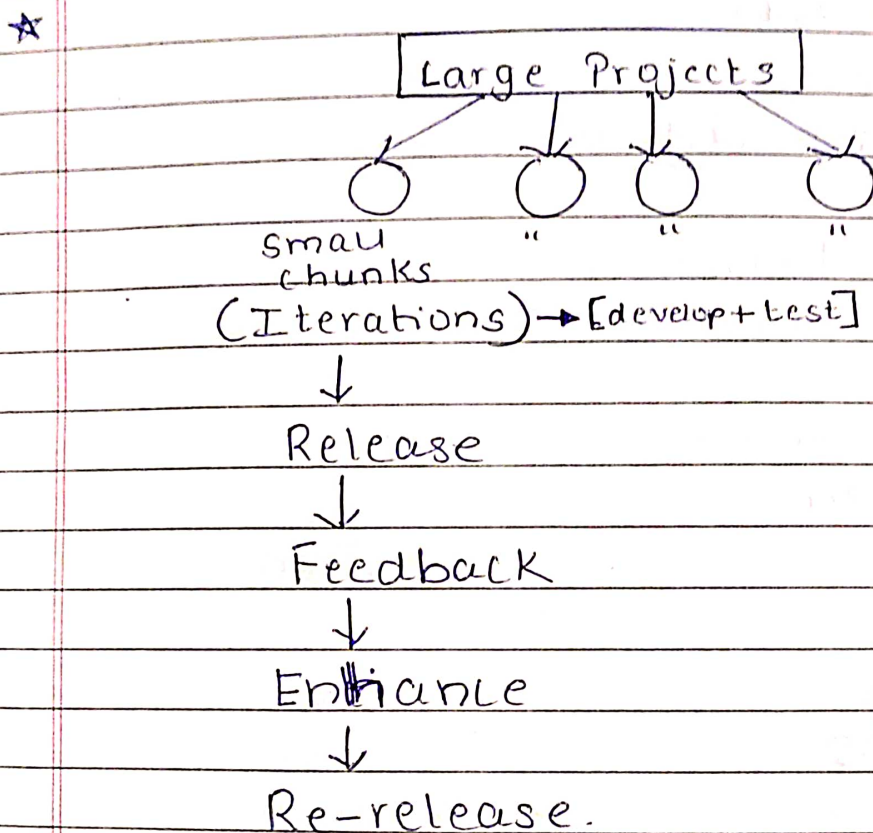 Large Projects
small " " "
chunks
(Iterations) → [develop + test]
↓
Release
↓
Feedback
↓
Enhance
↓
Re-release.